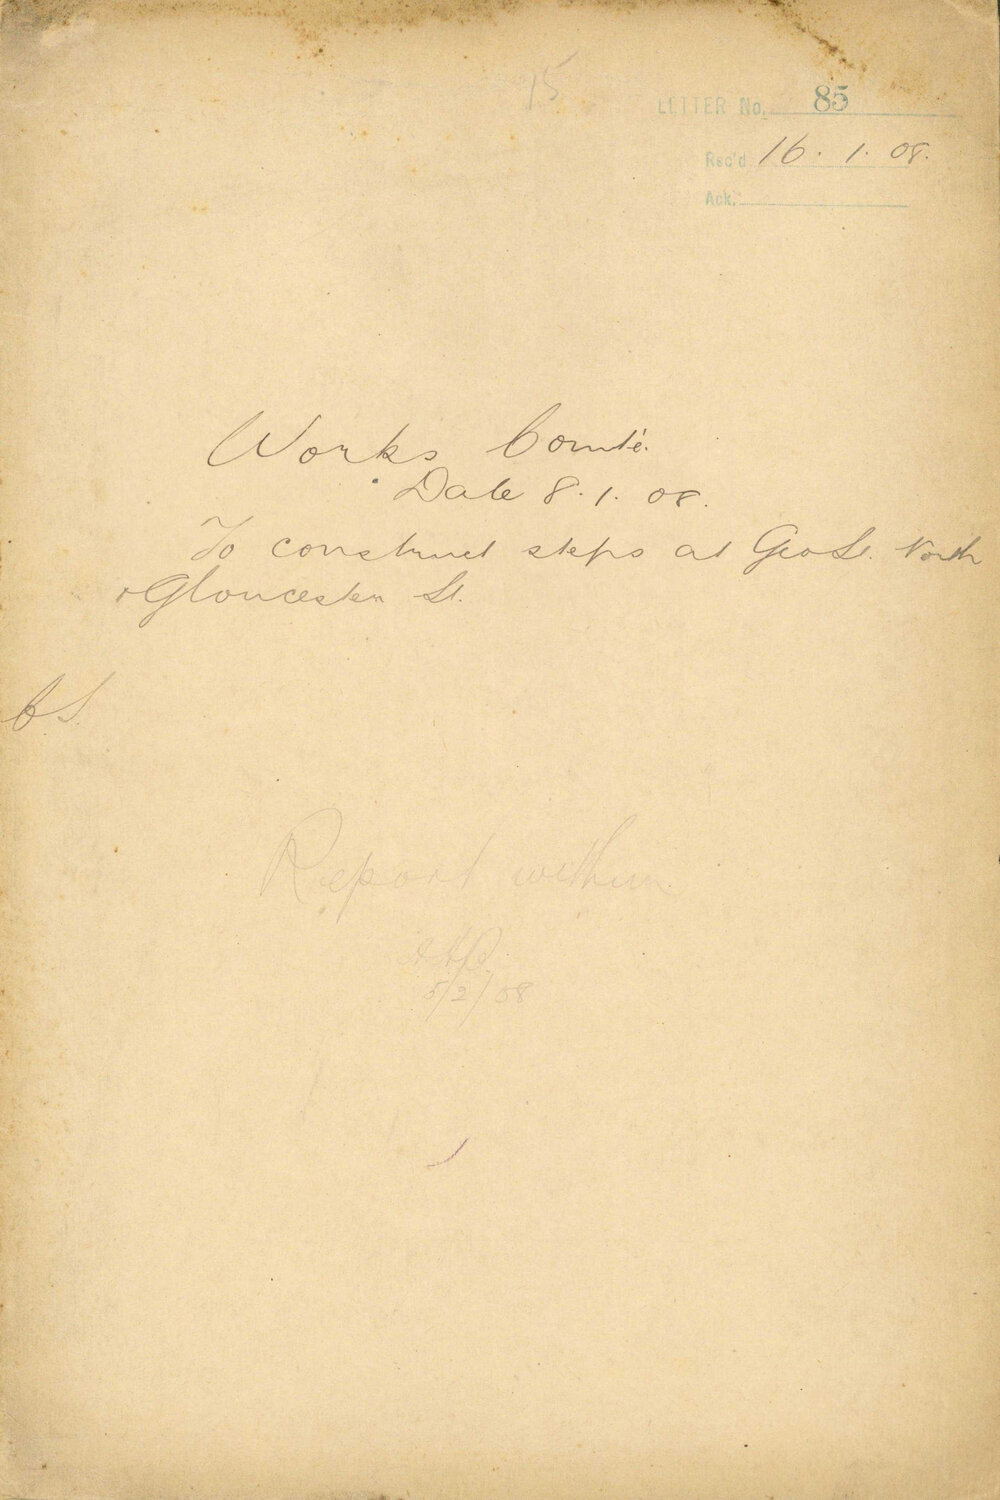 15
LETTER No. 85
Rec'd 16. 1. 08.
Ack.
Works Comté.
Date 8. 1. 08.
To construct steps at Geo St. North
& Gloucester St.
Report within
5/2/08